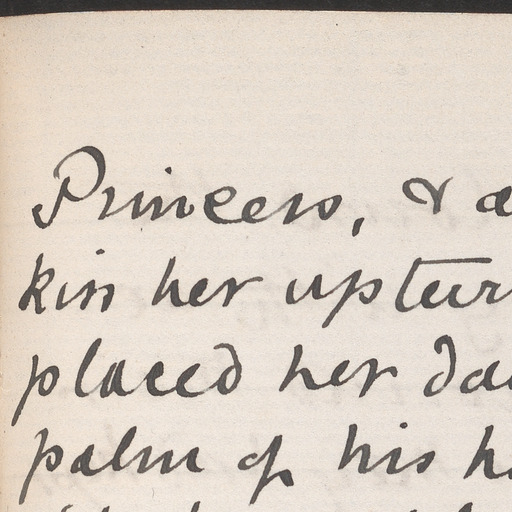 Princess, & a
kiss her uptur
placed her da
palm of his h